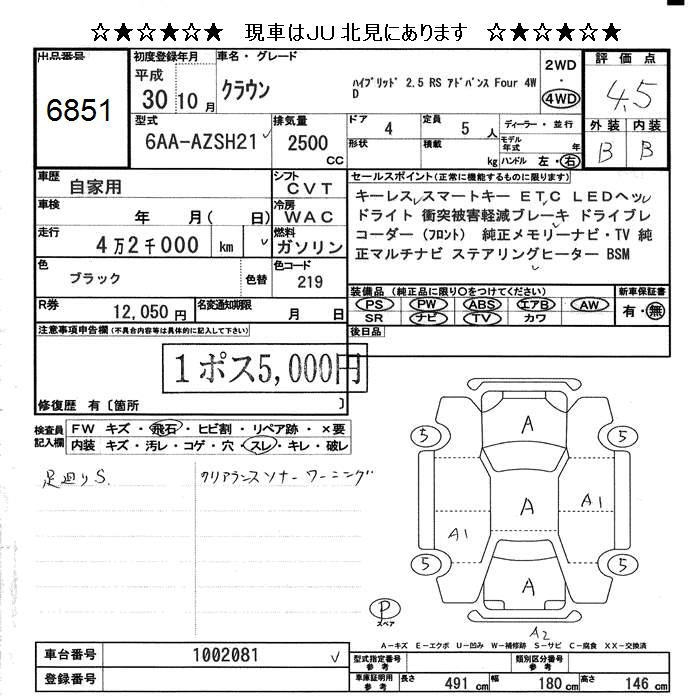 ☆★☆★☆★ 現車はJU北見にあります ☆★☆★☆★
出品番号
6851
初度登録年月
平成
30 10 月
車名・グレード
クラウン
ハイブリッド 2.5 RS アドバンス Four 4W
D
2WD
・
4WD
評価点
4.5
外装 内装
B B
型式
6AA-AZSH21
排気量
2500
CC
ドア
4
定員
5 人
形状
積載
kg
ディーラー・並行
モデル
年式
年
ハンドル 左・右
車歴
自家用
シフト
CVT
車検
年 月( 日)
冷房
WAC
走行
4万2千000 km
燃料
ガソリン
色
ブラック
色替
色コード
219
R券
12,050円
名変通知期限
月 日
セールスポイント(正常に機能するものに限ります)
キーレス スマートキー ETC LEDヘッ
ドライト 衝突被害軽減ブレーキ ドライブレ
コーダー(フロント) 純正メモリーナビ・TV 純
正マルチナビ ステアリングヒーター BSM
装備品(純正品に限り○をつけてください)
PS PW ABS エアB AW
SR ナビ TV カワ
新車保証書
有・無
後日品
注意事項申告欄(不具合内容等は具体的に記入して下さい)
1ポス5,000円
修復歴 有〔箇所 〕
検査員
記入欄
FW キズ・飛石・ヒビ割・リペア跡・×要
内装 キズ・汚レ・コゲ・穴・スレ・キレ・破レ
足廻りS.
クリアランスソナーワーニング
A
5 5
A
A1 A1
5 5
A
P
スペア
A2
A-キズ E-エクボ U-凹み W-補修跡 S-サビ C-腐食 XX-交換済
車台番号
1002081
登録番号
型式指定番号
参考
類別区分番号
参考
車庫証明用
参考
長さ 491 cm 幅 180 cm 高さ 146 cm